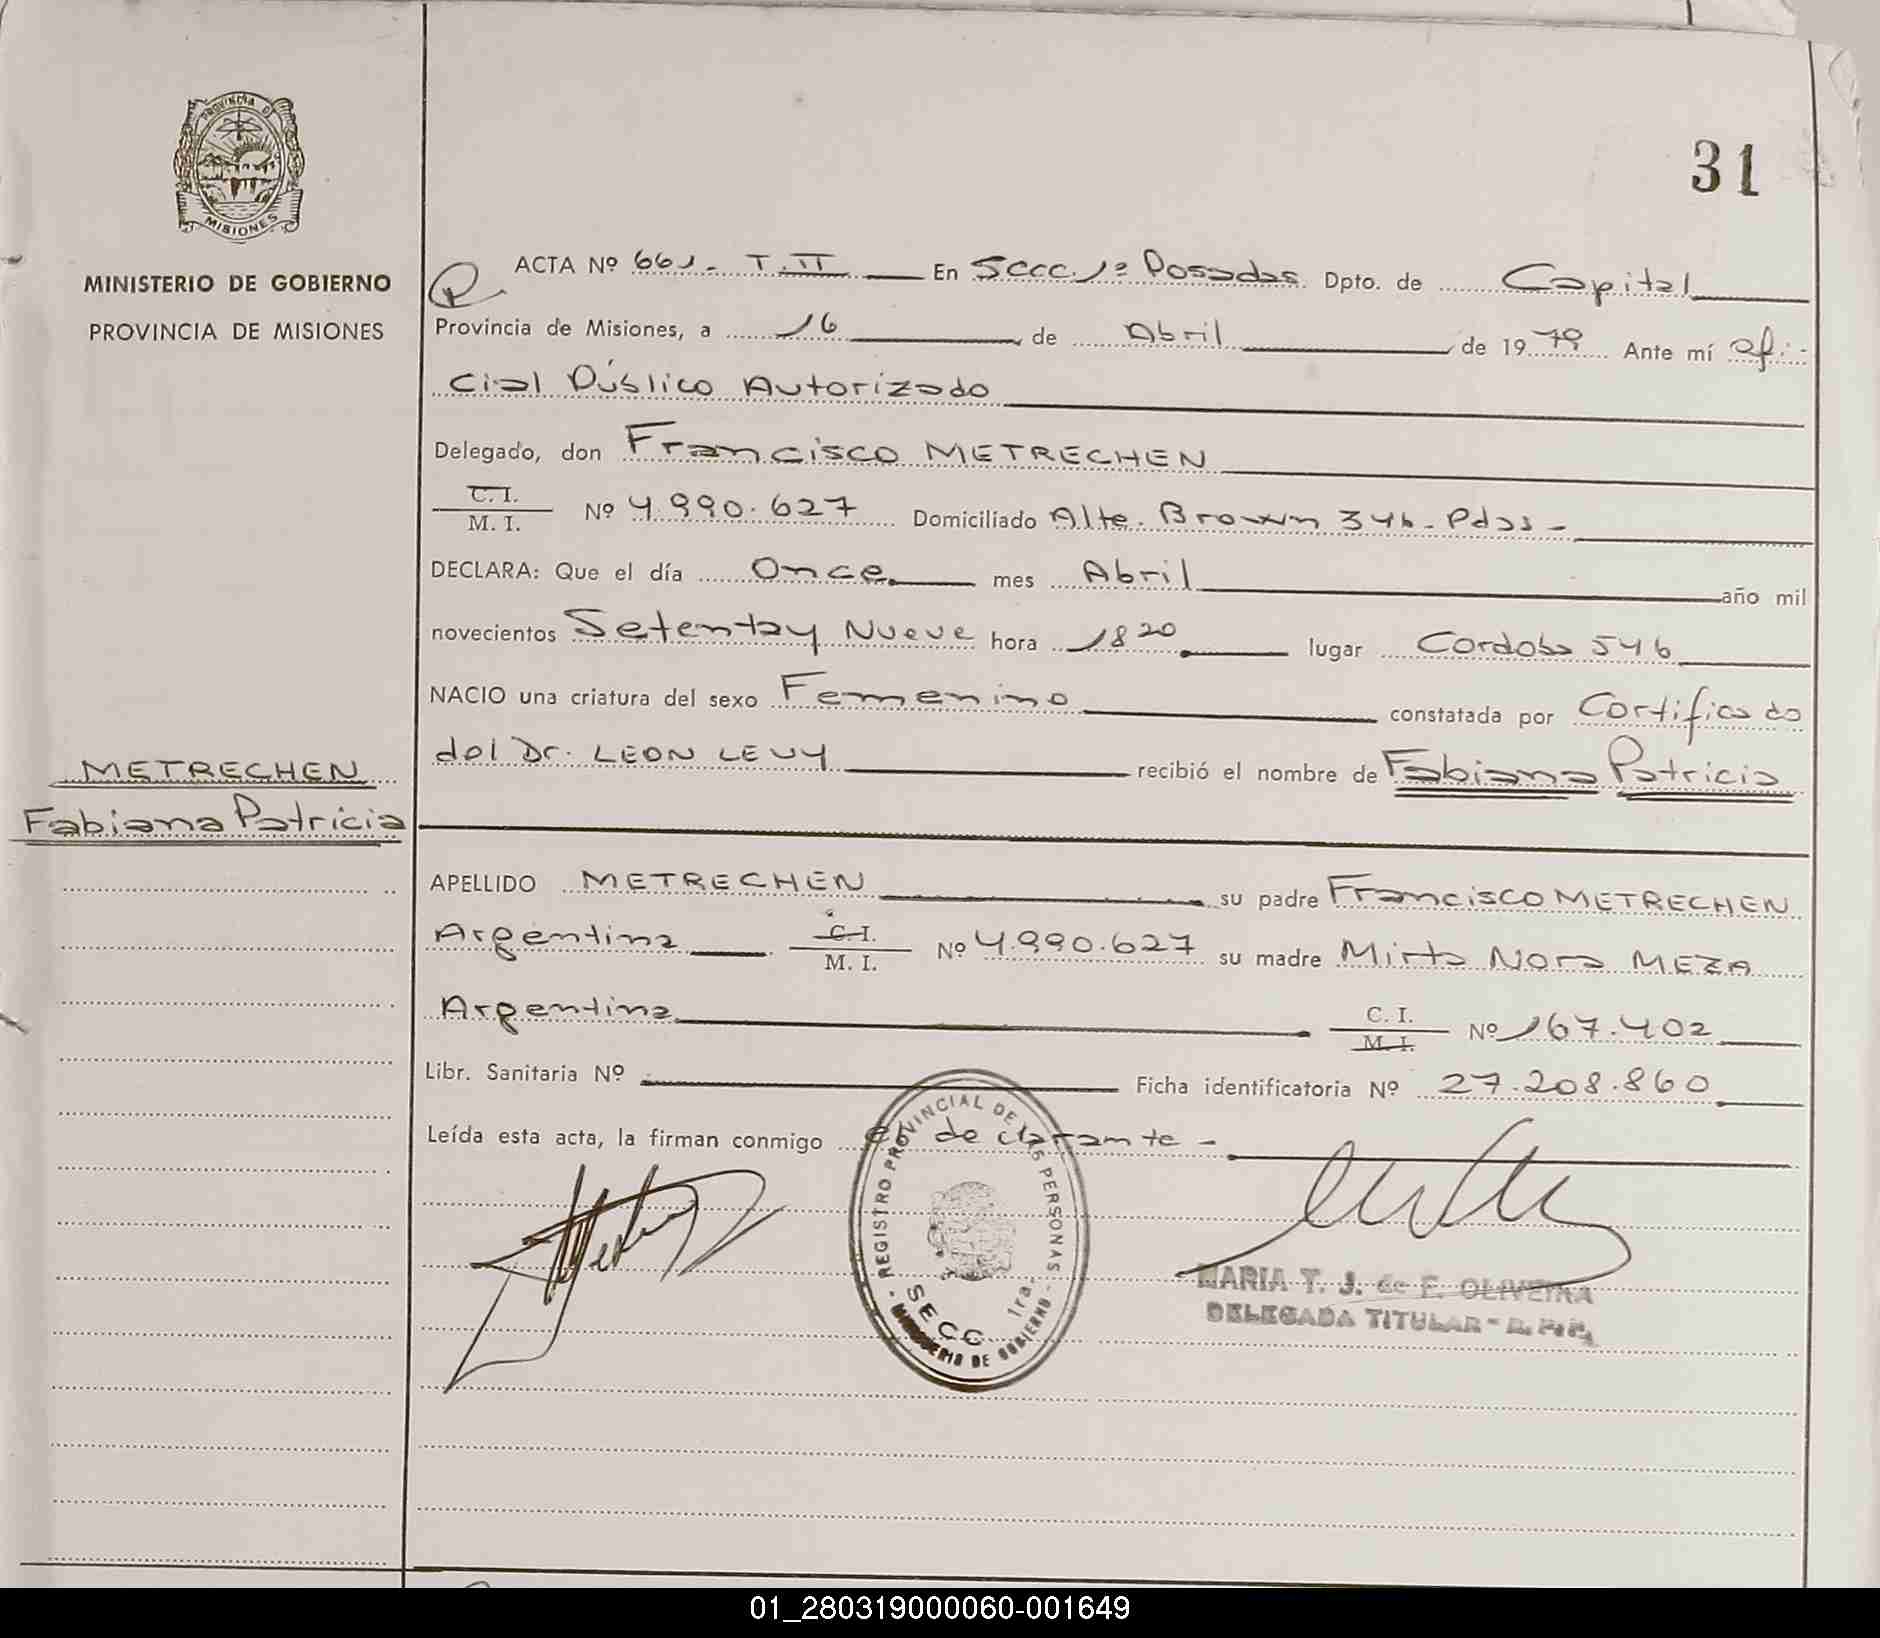 31
PROVINCIA DE
MISIONES
MINISTERIO DE GOBIERNO
PROVINCIA DE MISIONES
ACTA Nº 661. T. II En Secc. 1ª Posadas. Dpto. de Capital
Provincia de Misiones, a 16 de Abril de 1979 Ante mí ofi-
cial Público Autorizado
Delegado, don Francisco METRECHEN
C. I.
M. I. Nº 4.990.627 Domiciliado Alte. Brown 346 - Pdas -
DECLARA: Que el día Once mes Abril año mil
novecientos Setentay Nueve hora 18 20 lugar Cordoba 546
NACIO una criatura del sexo Femenino constatada por Certificado
del Dr. LEON LEVY recibió el nombre de Fabiana Patricia
METRECHEN
Fabiana Patricia
APELLIDO METRECHEN su padre Francisco METRECHEN
Argentina C. I.
M. I. Nº 4.990.627 su madre Mirta Nora MEZA
Argentina C. I.
M. I. Nº 167.402
Libr. Sanitaria Nº Ficha identificatoria Nº 27.208.860
Leída esta acta, la firman conmigo el declarante -
REGISTRO PROVINCIAL DE LAS PERSONAS
SECC 1ra.
MINISTERIO DE GOBIERNO
MARIA T. J. de F. OLIVEIRA
DELEGADA TITULAR - R. P. P.
01_280319000060-001649